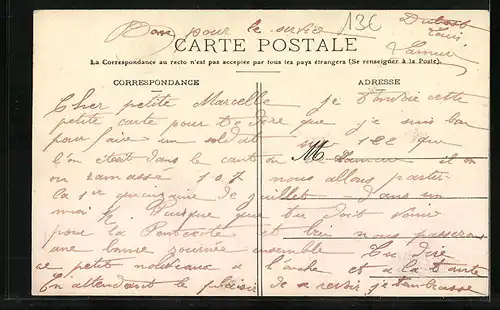 Bon pour le service
13C
Dubost
Louis
CARTE POSTALE
La Correspondance au recto n'est pas acceptée par tous les pays étrangers (Se renseigner à la Poste).
CORRESPONDANCE
ADRESSE
Cher petite Marcelle je t'envoie cette
petite carte pour te dire que je suis bon
pour faire un soldat sur 122 que
l'on était dans le canton il on
M
on ramassé 107 nous allons partir
la 1re quinzaine de juillet dans un
moi Puisque que tu doit venir
pour la Pentecote et bien nous passerons
une bonne journée ensemble Tu dire
ce petit nouveaux a et a la tante
En attendant le plaisir de se revoir je t'embrasse